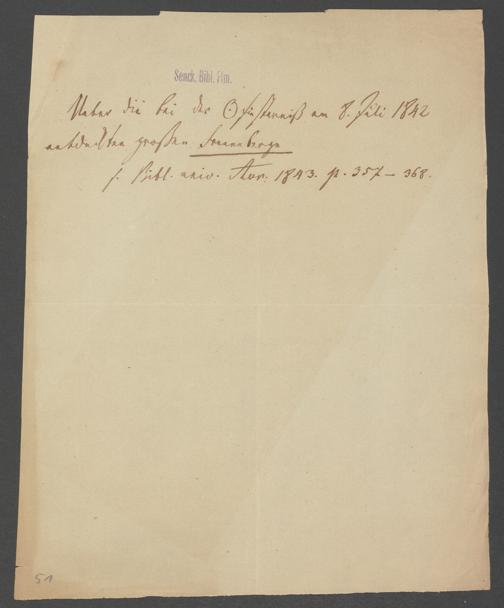 Senck. Bibl. Ffm.
Ueber die bei der ☉ finsterniß am 8. Juli 1842
entdeckten großen Sonnenberge
s. Bibl. univ. 1843. p. 357 – 368.
51